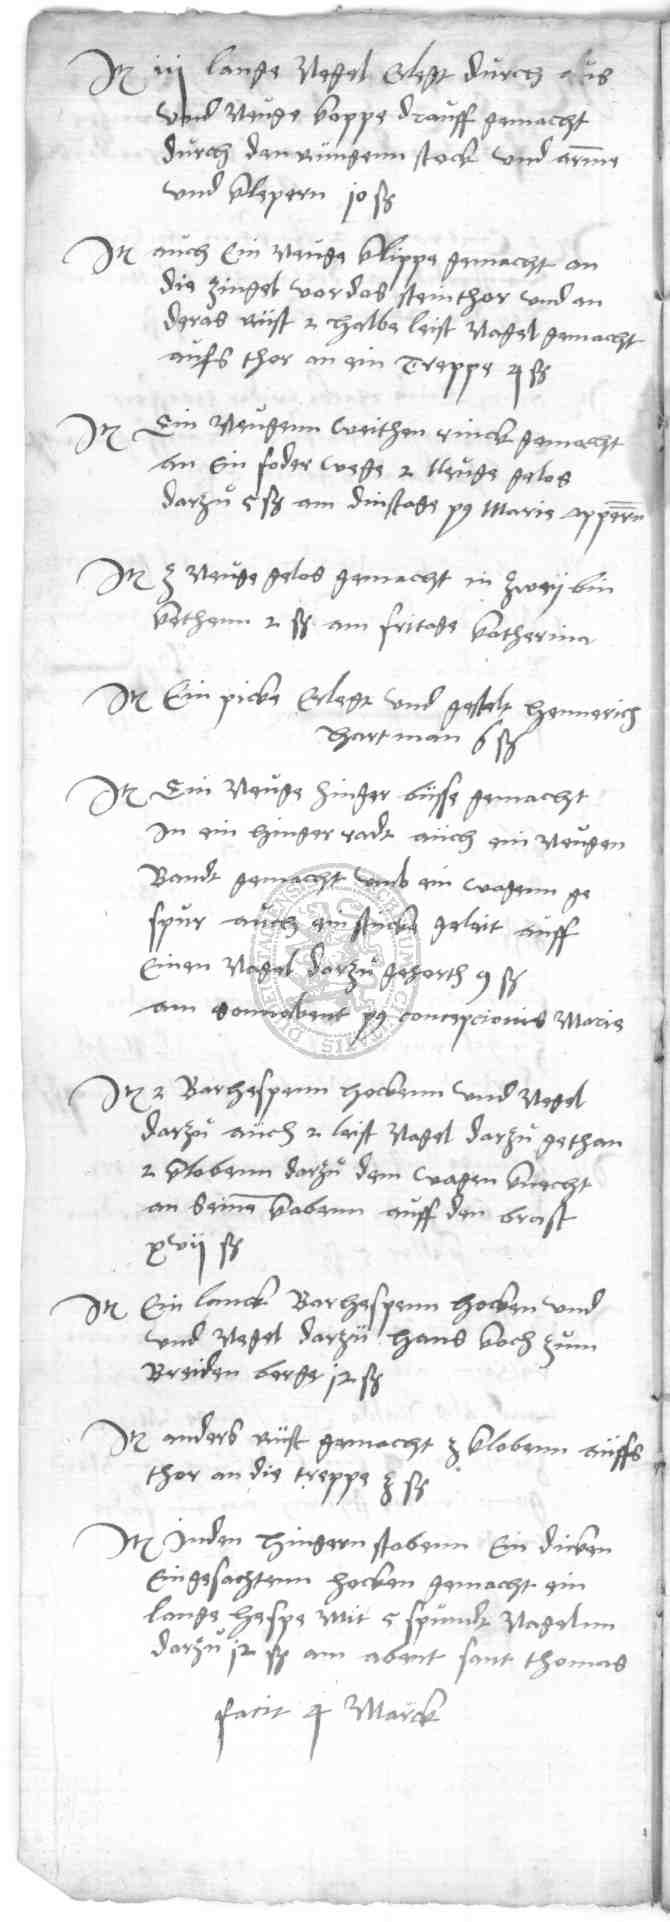 Itꝫ iij lange Negel Erlegt durch aus
und Neuge koppe drauff gemacht
durch den rungenn stock und arme
und klepern 10 ß
Itꝫ auch Ein Neuge klippe gemacht an
die zingel vor das steinthor und an
deras rüst 2 halbe leist Nagel gemacht
aufs thor an ein Treppe 4 ß
Itꝫ Ein Neugenn Weithen rinck gemacht
an Ein foder wege 2 Neuge gelos
darzu 5 ß am dinstage p9 Marie
Itꝫ 3 Neuge gelos gemacht in zweij bin
kethenn 2 ß am fritage katherina
Itꝫ Ein picke Erlegt und gestelt Hennerich
Hartman 6 ß
Itꝫ Ein Neuge Hinger büsse gemacht
In ein hinger radt auch ein Neugen
Bandt gemacht umb ein wagenn ge
spur auch ein stücke geleit auff
Einen Nagel darzu gehorth 9 ß
am sonnabent p9 concepcionis Marie
Itꝫ 2 Barhespenn hockenn und Negel
darzu auch 2 leist Nagel darzu gethan
2 klobenn darzu dem wagen knecht
an seine kabenn auff den
xvij ß
Itꝫ Ein lanck Barhespenn hocken und
und Negel darzu Hans koch zum
Breiden berge 12 ß
Itꝫ anders rüst gemacht 3 klobenn auffs
thor an die treppe 3 ß
Itꝫ Inden Hingern stobenn Ein dicken
Eingesachtenn hocken gemacht ein
lange hespe Mit 5 spundt Nagelnn
darzu 12 ß am abent sant thomas
facit 4 Marck